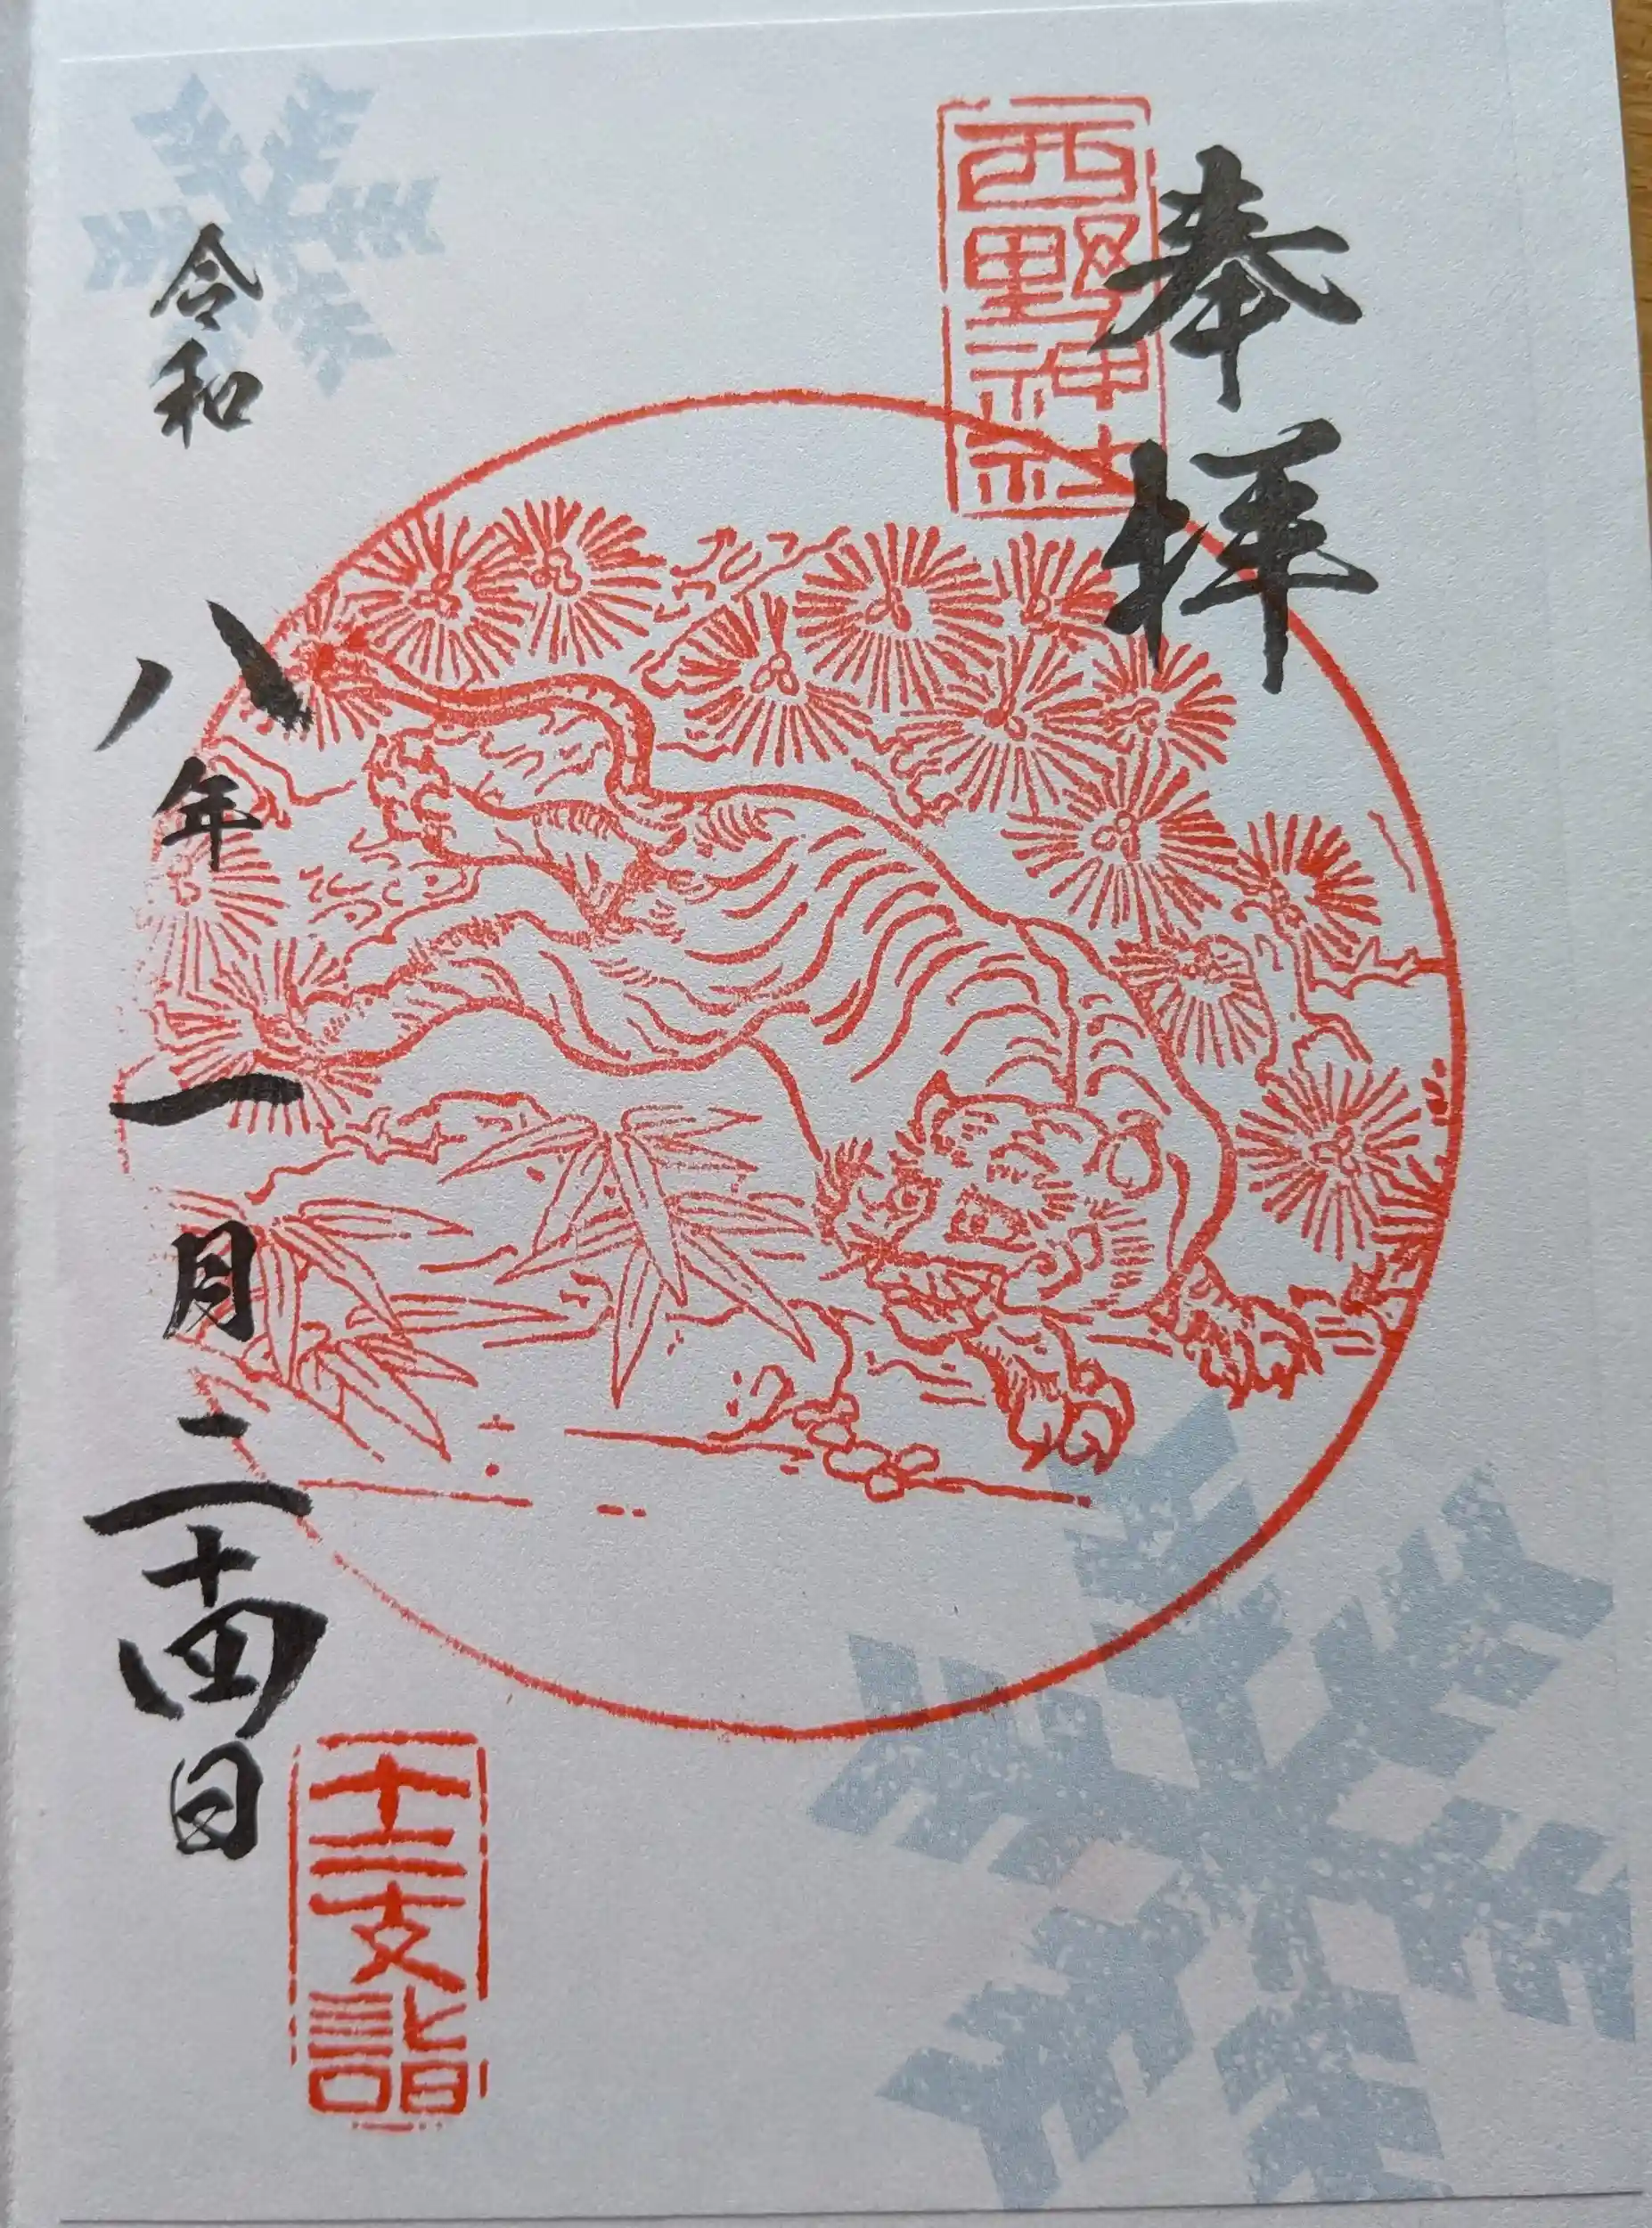 奉拝
西野神社
十二支詣
令和八年一月二十四日